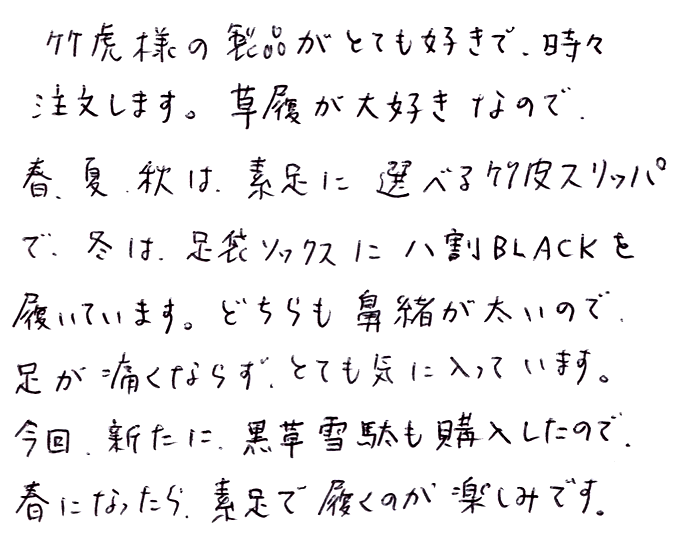 竹虎様の製品がとても好きで、時々
注文します。草履が大好きなので、
春、夏、秋は、素足に選べる竹皮スリッパ
で、冬は、足袋ソックスに八割BLACKを
履いています。どちらも鼻緒が太いので、
足が痛くならず、とても気に入っています。
今回、新たに、黒草雪駄も購入したので、
春になったら、素足で履くのが楽しみです。